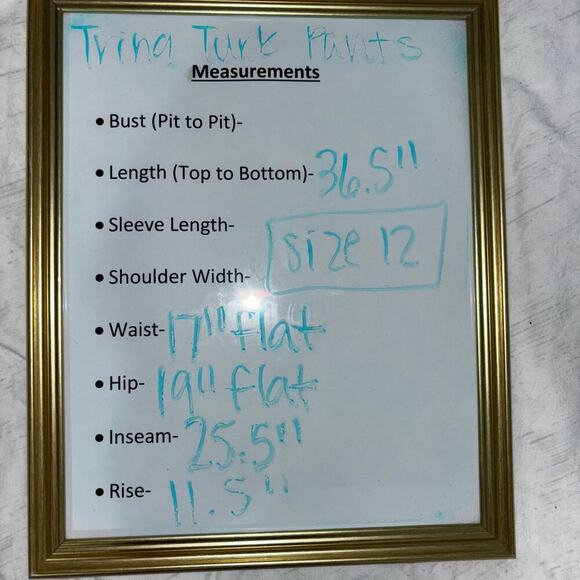 Trina Turk Pants
Measurements
• Bust (Pit to Pit)-
• Length (Top to Bottom)- 36.5"
• Sleeve Length-
size 12
• Shoulder Width-
• Waist- 17" flat
• Hip- 19" flat
• Inseam- 25.5"
• Rise- 11.5"